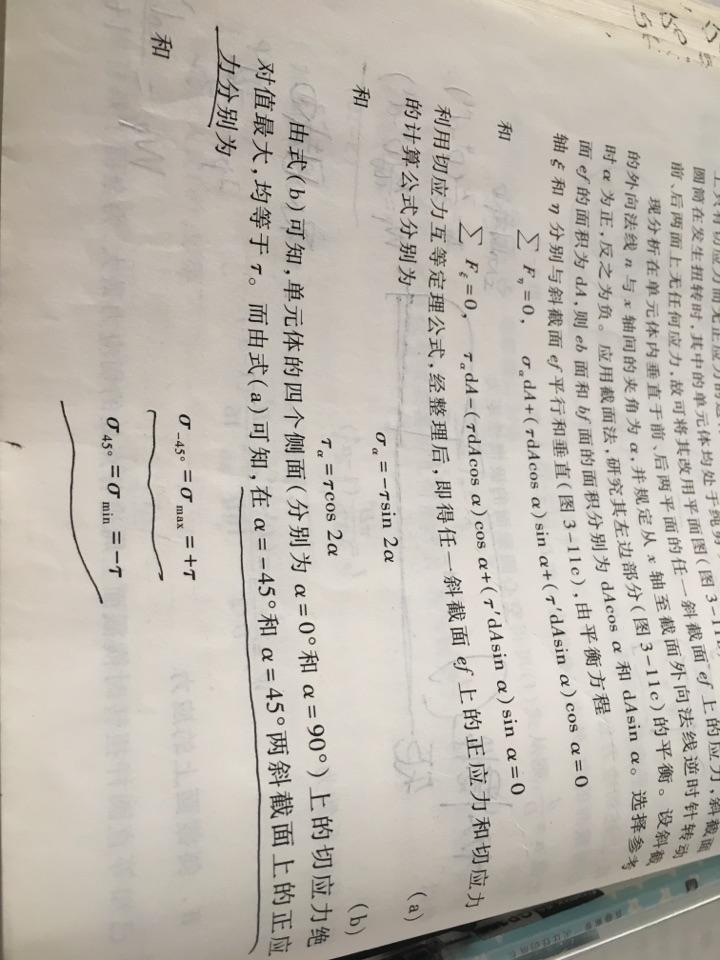 圆筒在发生扭转时,其中的单元体均处于纯剪
前、后两面上无任何应力,故可将其改用平面图(图3-11
现分析在单元体内垂直于前、后两平面的任一斜截面 ef 上的应力,斜截面
的外向法线 n 与 x 轴间的夹角为 α,并规定从 x 轴至截面外向法线逆时针转动
时 α 为正,反之为负。应用截面法,研究其左边部分(图 3-11c)的平衡。设斜截
面 ef 的面积为 dA,则 eb 面和 bf 面的面积分别为 dAcos α 和 dAsin α。选择参考
轴 ξ 和 η 分别与斜截面 ef 平行和垂直(图 3-11c),由平衡方程
∑ Fη=0, σαdA+(τdAcos α)sin α+(τ′dAsin α)cos α=0
和
∑ Fξ=0, ταdA-(τdAcos α)cos α+(τ′dAsin α)sin α=0
利用切应力互等定理公式,经整理后,即得任一斜截面 ef 上的正应力和切应力
的计算公式分别为
σα=-τsin 2α (a)
和
τα=τcos 2α (b)
由式(b)可知,单元体的四个侧面(分别为 α=0°和 α=90°)上的切应力绝
对值最大,均等于 τ。而由式(a)可知,在 α=-45°和 α=45°两斜截面上的正应
力分别为
σ-45°=σmax=+τ
和
σ45°=σmin=-τ